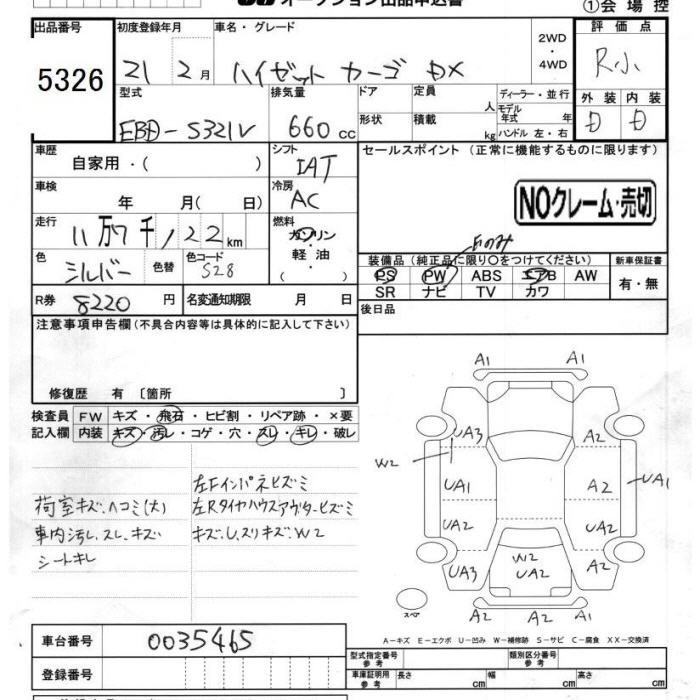 オークション出品申込書
①会場控
出品番号 初度登録年月 車名・グレード 評価点
5326 21 2月 ハイゼット カーゴ DX 2WD・4WD R小
型式 排気量 ドア 定員 人 ディーラー・並行 外装 内装
EBD-S321V 660cc 形状 積載 kg モデル年式 年式 ハンドル 左・右 D D
車歴 シフト セールスポイント(正常に機能するものに限ります)
自家用・( ) IAT
車検 冷房
年 月( 日) AC NOクレーム・売切
走行 燃料
11万7千122km ガソリン・軽油・( ) Fのみ
色 色替 色コード 装備品(純正品に限り○をつけてください) 新車保証書
シルバー S28 PS PW ABS エアB AW 有・無
R券 8220円 名変通知期限 月 日 SR ナビ TV カワ
後日品
注意事項申告欄(不具合内容等は具体的に記入して下さい)
修復歴 有〔箇所 〕
検査員 FW キズ・飛石・ヒビ割・リペア跡・×要
記入欄 内装 キズ・汚レ・コゲ・穴・スレ・キレ・破レ
左Fインパネヒズミ
荷室キズ、ヘコミ(大) 左Rタイヤハウスアウターヒズミ
車内汚レ、スレ、キズ キズ、U、スリキズ、W2
シートキレ
A1 A1
UA3 A2
W2
UA1 A2 UA1
UA2 A2
W2
UA3 UA2 A2
スペア
A2 A2
A-キズ E-エクボ U-凹み W-補修跡 S-サビ C-腐食 XX-交換済
車台番号 0035465
型式指定番号 参考 類別区分番号 参考
登録番号 車庫証明用 参考 長さ cm 幅 cm 高さ cm